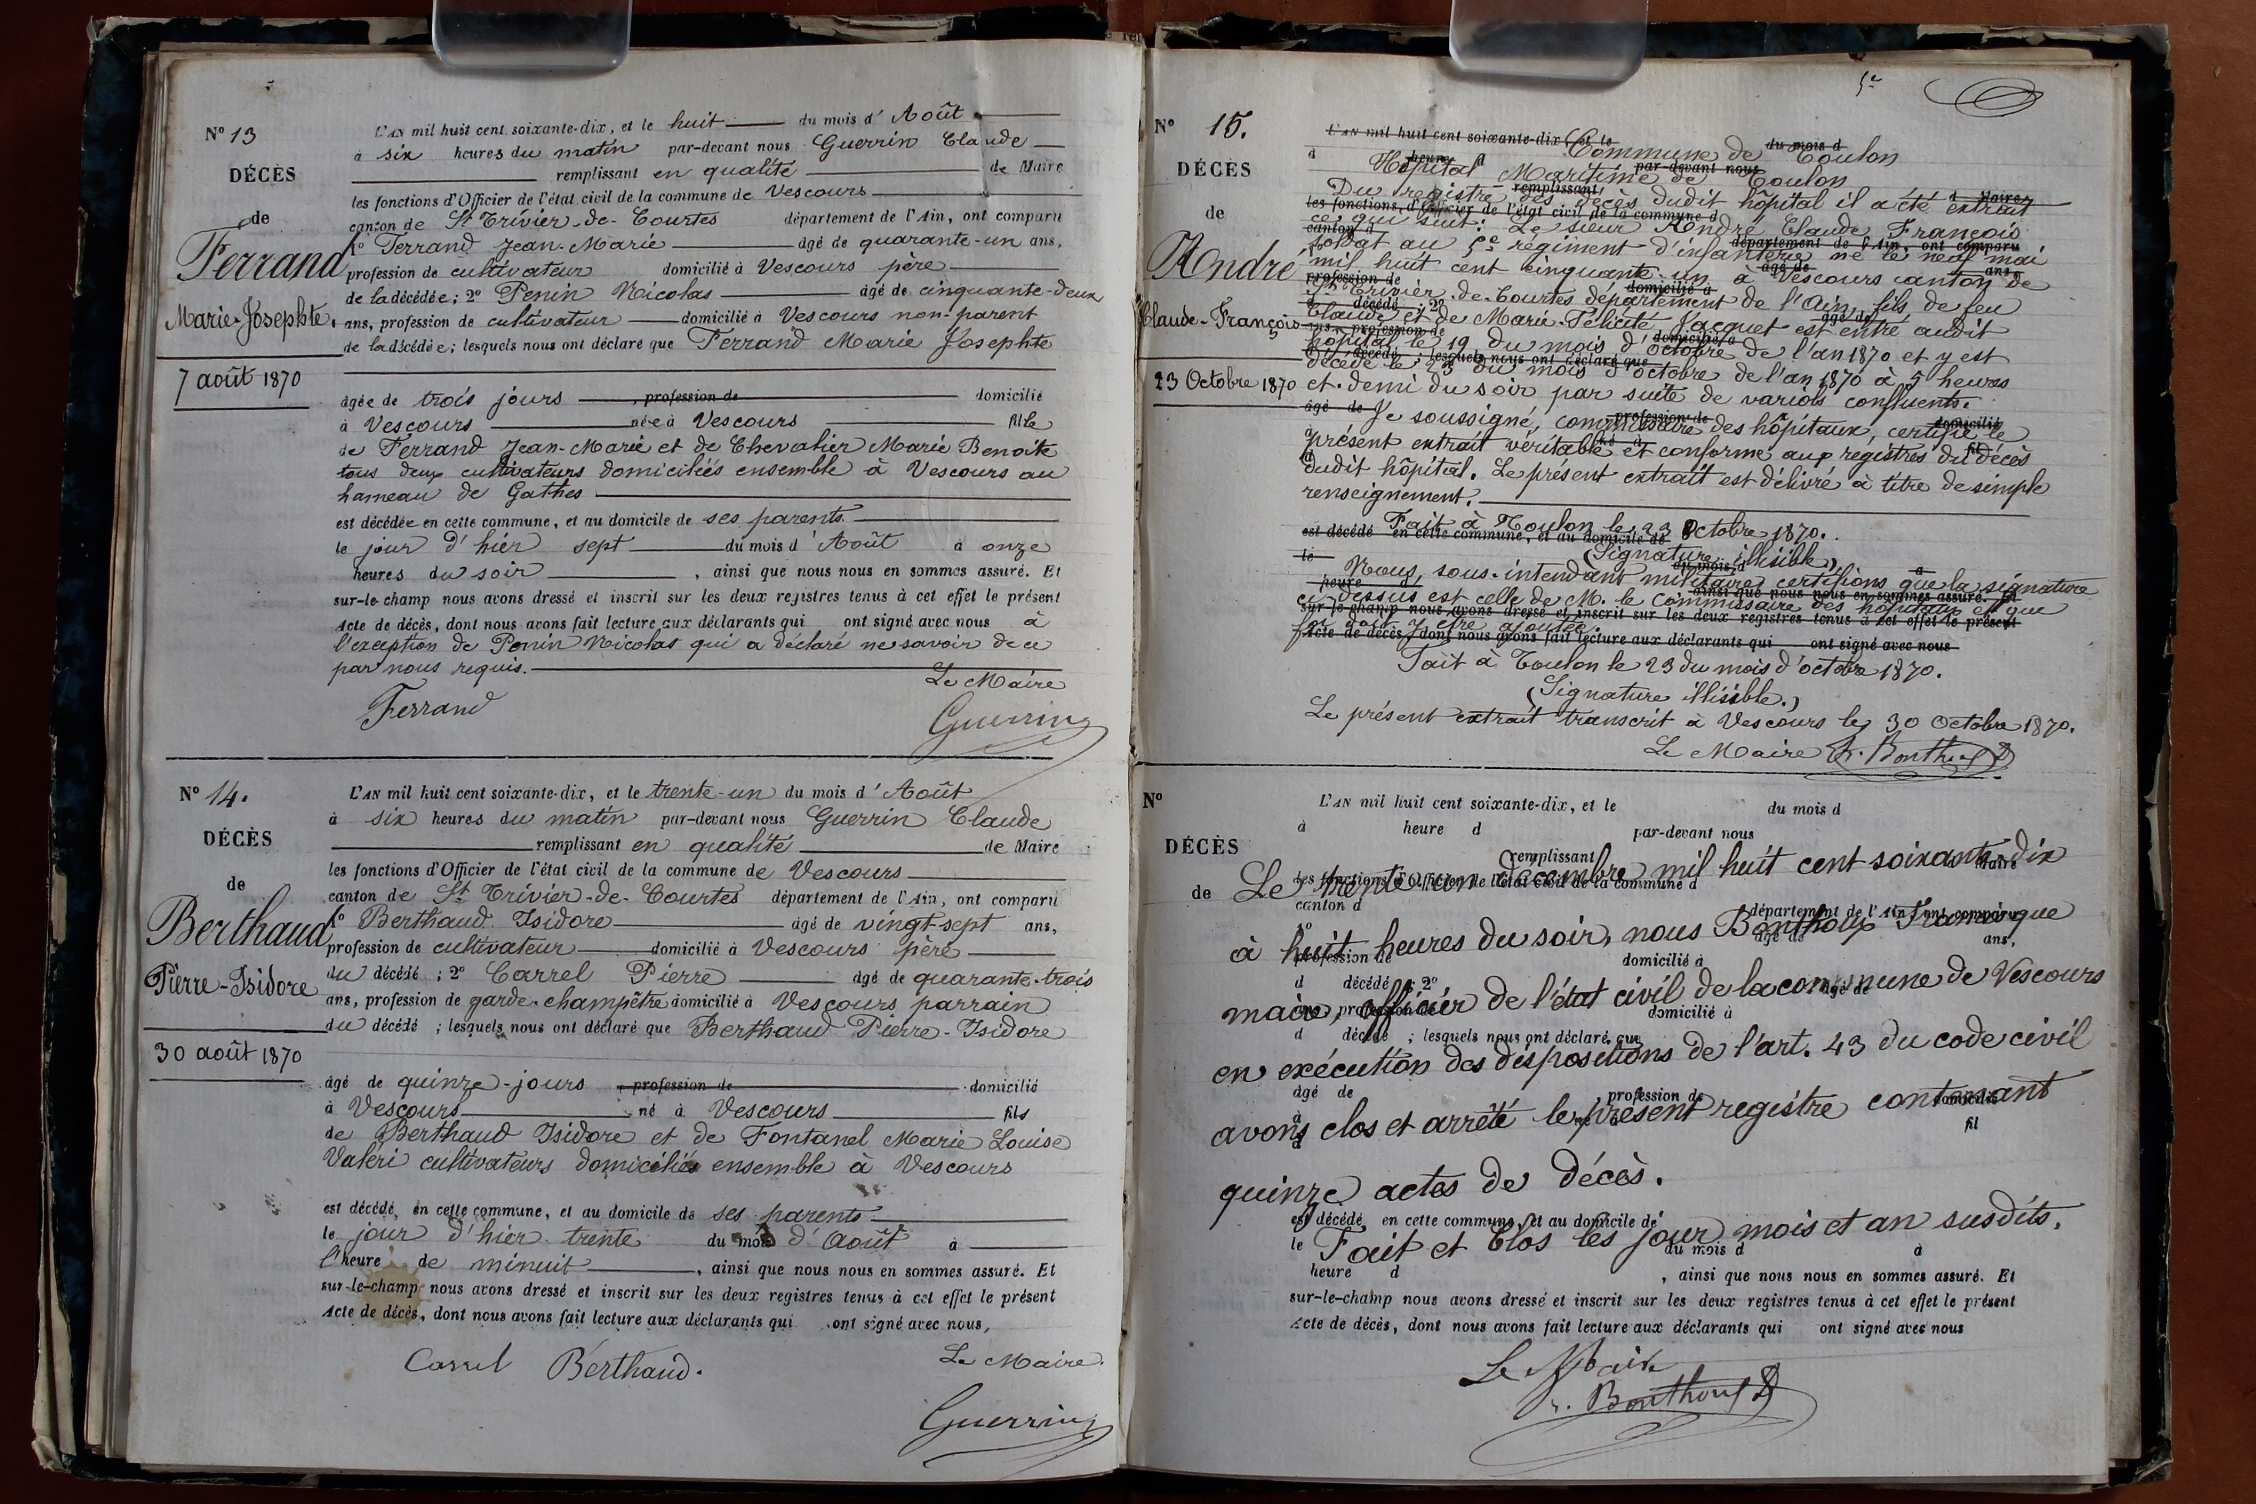 N° 13
DÉCÈS
de
Ferrand
Marie-Josephte.
7 août 1870
L'AN mil huit cent soixante-dix, et le huit du mois d'Août
à six heures du matin par-devant nous Guerrin Claude
remplissant en qualité de Maire
les fonctions d'Officier de l'état civil de la commune de Vescours
canton de St Trivier-de-Courtes département de l'Ain, ont comparu
1° Ferrand Jean-Marie âgé de quarante-un ans,
profession de cultivateur domicilié à Vescours père
de la décédée; 2° Penin Nicolas âgé de cinquante-deux
ans, profession de cultivateur domicilié à Vescours non-parent
de la décédée; lesquels nous ont déclaré que Ferrand Marie Josephte
âgée de trois jours , profession de domicilié
à Vescours née à Vescours fille
de Ferrand Jean-Marie et de Chevalier Marie Benoite
tous deux cultivateurs domiciliés ensemble à Vescours au
hameau de Gathes
est décédée en cette commune, et au domicile de ses parents
le jour d'hier sept du mois d'Août à onze
heures du soir , ainsi que nous nous en sommes assuré. Et
sur-le-champ nous avons dressé et inscrit sur les deux registres tenus à cet effet le présent
Acte de décès, dont nous avons fait lecture aux déclarants qui ont signé avec nous à
l'exception de Penin Nicolas qui a déclaré ne savoir de ce
par nous requis.
Le Maire
Ferrand
Guerrin
N° 14.
DÉCÈS
de
Berthaud
Pierre-Isidore
30 août 1870
L'AN mil huit cent soixante-dix, et le trente-un du mois d'Août
à six heures du matin par-devant nous Guerrin Claude
remplissant en qualité de Maire
les fonctions d'Officier de l'état civil de la commune de Vescours
canton de St Trivier-de-Courtes département de l'Ain, ont comparu
1° Berthaud Isidore âgé de vingt-sept ans,
profession de cultivateur domicilié à Vescours père
du décédé; 2° Carrel Pierre âgé de quarante-trois
ans, profession de garde-champêtre domicilié à Vescours parrain
du décédé; lesquels nous ont déclaré que Berthaud Pierre-Isidore
âgé de quinze-jours , profession de domicilié
à Vescours né à Vescours fils
de Berthaud Isidore et de Fontanel Marie Louise
Valéri cultivateurs domiciliés ensemble à Vescours
est décédé en cette commune, et au domicile de ses parents
le jour d'hier trente du mois d'Août à
l'heure de minuit , ainsi que nous nous en sommes assuré. Et
sur-le-champ nous avons dressé et inscrit sur les deux registres tenus à cet effet le présent
Acte de décès, dont nous avons fait lecture aux déclarants qui ont signé avec nous,
Carrel Berthaud.
Le Maire.
Guerrin
N° 15.
DÉCÈS
de
André
Claude-François
23 Octobre 1870
Commune de Toulon
Hôpital Maritime de Toulon
Du registre des décès dudit hôpital il a été extrait
ce qui suit: Le sieur André Claude François
soldat au 5e régiment d'infanterie né le neuf mai
mil huit cent cinquante-un à Vescours canton de
St Trivier-de-Courtes département de l'Ain, fils de feu
Claude et de Marie-Félicité Jacquet est entré audit
hôpital le 19 du mois d'octobre de l'an 1870 et y est
décédé le 23 du mois d'octobre de l'an 1870 à 5 heures
et demi du soir par suite de variols confluents.
Je soussigné, commissaire des hôpitaux, certifie le
présent extrait véritable et conforme aux registres du décès
dudit hôpital. Le présent extrait est délivré à titre de simple
renseignement.
Fait à Toulon le 23 Octobre 1870.
(Signature illisible)
Nous, sous-intendant militaire, certifions que la signature
ci dessus est celle de M. le Commissaire des hôpitaux et que
foi doit y être ajoutée.
Fait à Toulon le 23 du mois d'octobre 1870.
(Signature illisible.)
Le présent extrait transcrit à Vescours le 30 Octobre 1870.
Le Maire F. Bonthoux
N°
DÉCÈS
de
L'AN mil huit cent soixante-dix, et le du mois d
à heure d par-devant nous
Le trente-un décembre mil huit cent soixante-dix
à huit heures du soir, nous Bonthoux Francisque
maire, officier de l'état civil de la commune de Vescours
en exécution des dispositions de l'art. 43 du code civil
avons clos et arrêté le présent registre contenant
quinze actes de décès.
est décédé en cette commune, et au domicile de
Fait et Clos les jour mois et an susdits.
le du mois d à
heure d , ainsi que nous nous en sommes assuré. Et
sur-le-champ nous avons dressé et inscrit sur les deux registres tenus à cet effet le présent
Acte de décès, dont nous avons fait lecture aux déclarants qui ont signé avec nous
Le Maire
F. Bonthoux